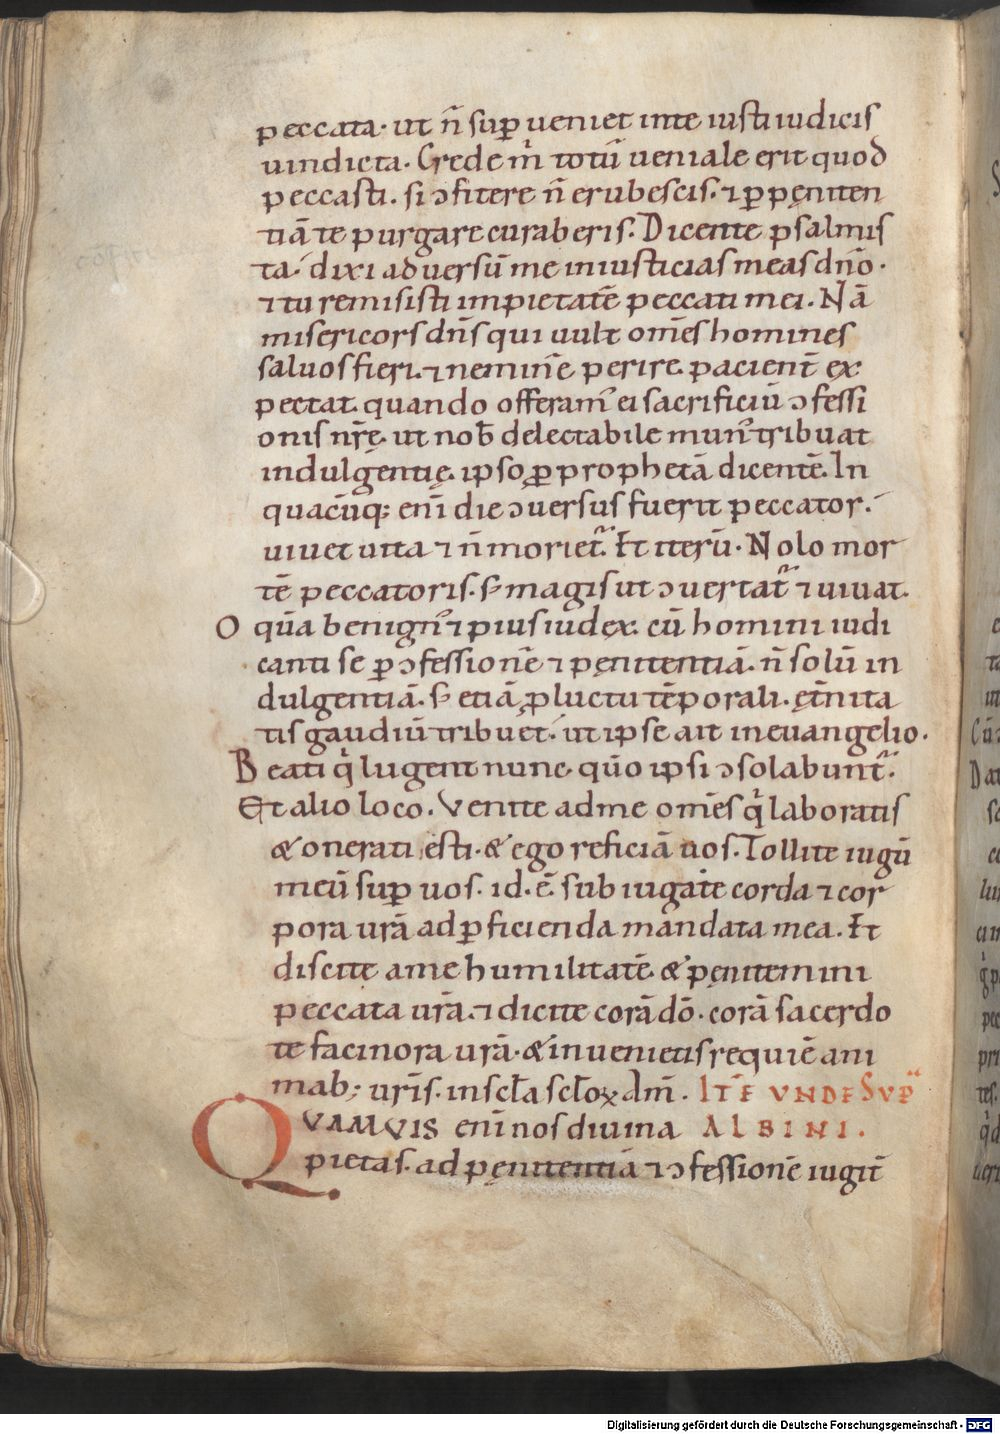 peccata. ut n̄ sup̱ ueniet inte iusti iudicis
uindicta. Crede m̄ totū ueniale erit quod
peccasti. si ɔfitere n̄ erubescis. ⁊ p̱ pęniten
tiā te purgare curaberis. Dicente psalmis
ta. dixi aduersū me iniusticias meas dn̄o.
⁊ tu remisisti impietatē peccati mei. Nā
misericors dn̄s qui uult om̄es homines
saluos fieri. ⁊ neminē perire. pacient̄ ex
pectat. quando offeram᾽ ei sacrificiū ɔfessi
onis nr̄ę. ut nob̄ delectabile mun᾽ tribuat
indulgentię. ipso ꝓ prophetā dicentē. In
quacūq; enī die ɔuersus fuerit peccator.
uiuet uita ⁊ n̄ moriet᷑. Et iterū. Nolo mor
tē peccatoris. s; magis ut ɔuertat᷑ ⁊ uiuat.
O quā benign᾽ ⁊ pius iudex. cū homini iudi
canti se p̱ ɔfessionē ⁊ pęnitentiā. n̄ solū in
dulgentiā. s; etiā ꝓ luctu tēporali. ęt̄nita
tis gaudiū tribuet. ut ipse ait in euangelio.
Beati qͥ lugent nunc. qūo ipsi ɔsolabunt᷑.
Et alio loco. Venite adme om̄es qͥ laboratis
& onerati esti. & ego reficiā uos. Tollite iugū
meū sup̱ uos. id. ē. sub iugate corda ⁊ cor
pora urā ad p̱ficienda mandata mea. Et
discite ame humilitatē. & pęnitemini
peccata urā. ⁊ dicite corā dō. corā sacerdo
te facinora urā. & inuenietis requiē ani
mab; urīs. in scl̄a scl̄oꝝ. Am̄. ITĒ UNDE SUPᷓ
QVAMVIS enī nos diuina ALBINI.
pietas. ad pęnitentiā ⁊ ɔfessionē iugit̄
Digitalisierung gefördert durch die Deutsche Forschungsgemeinschaft - DFG